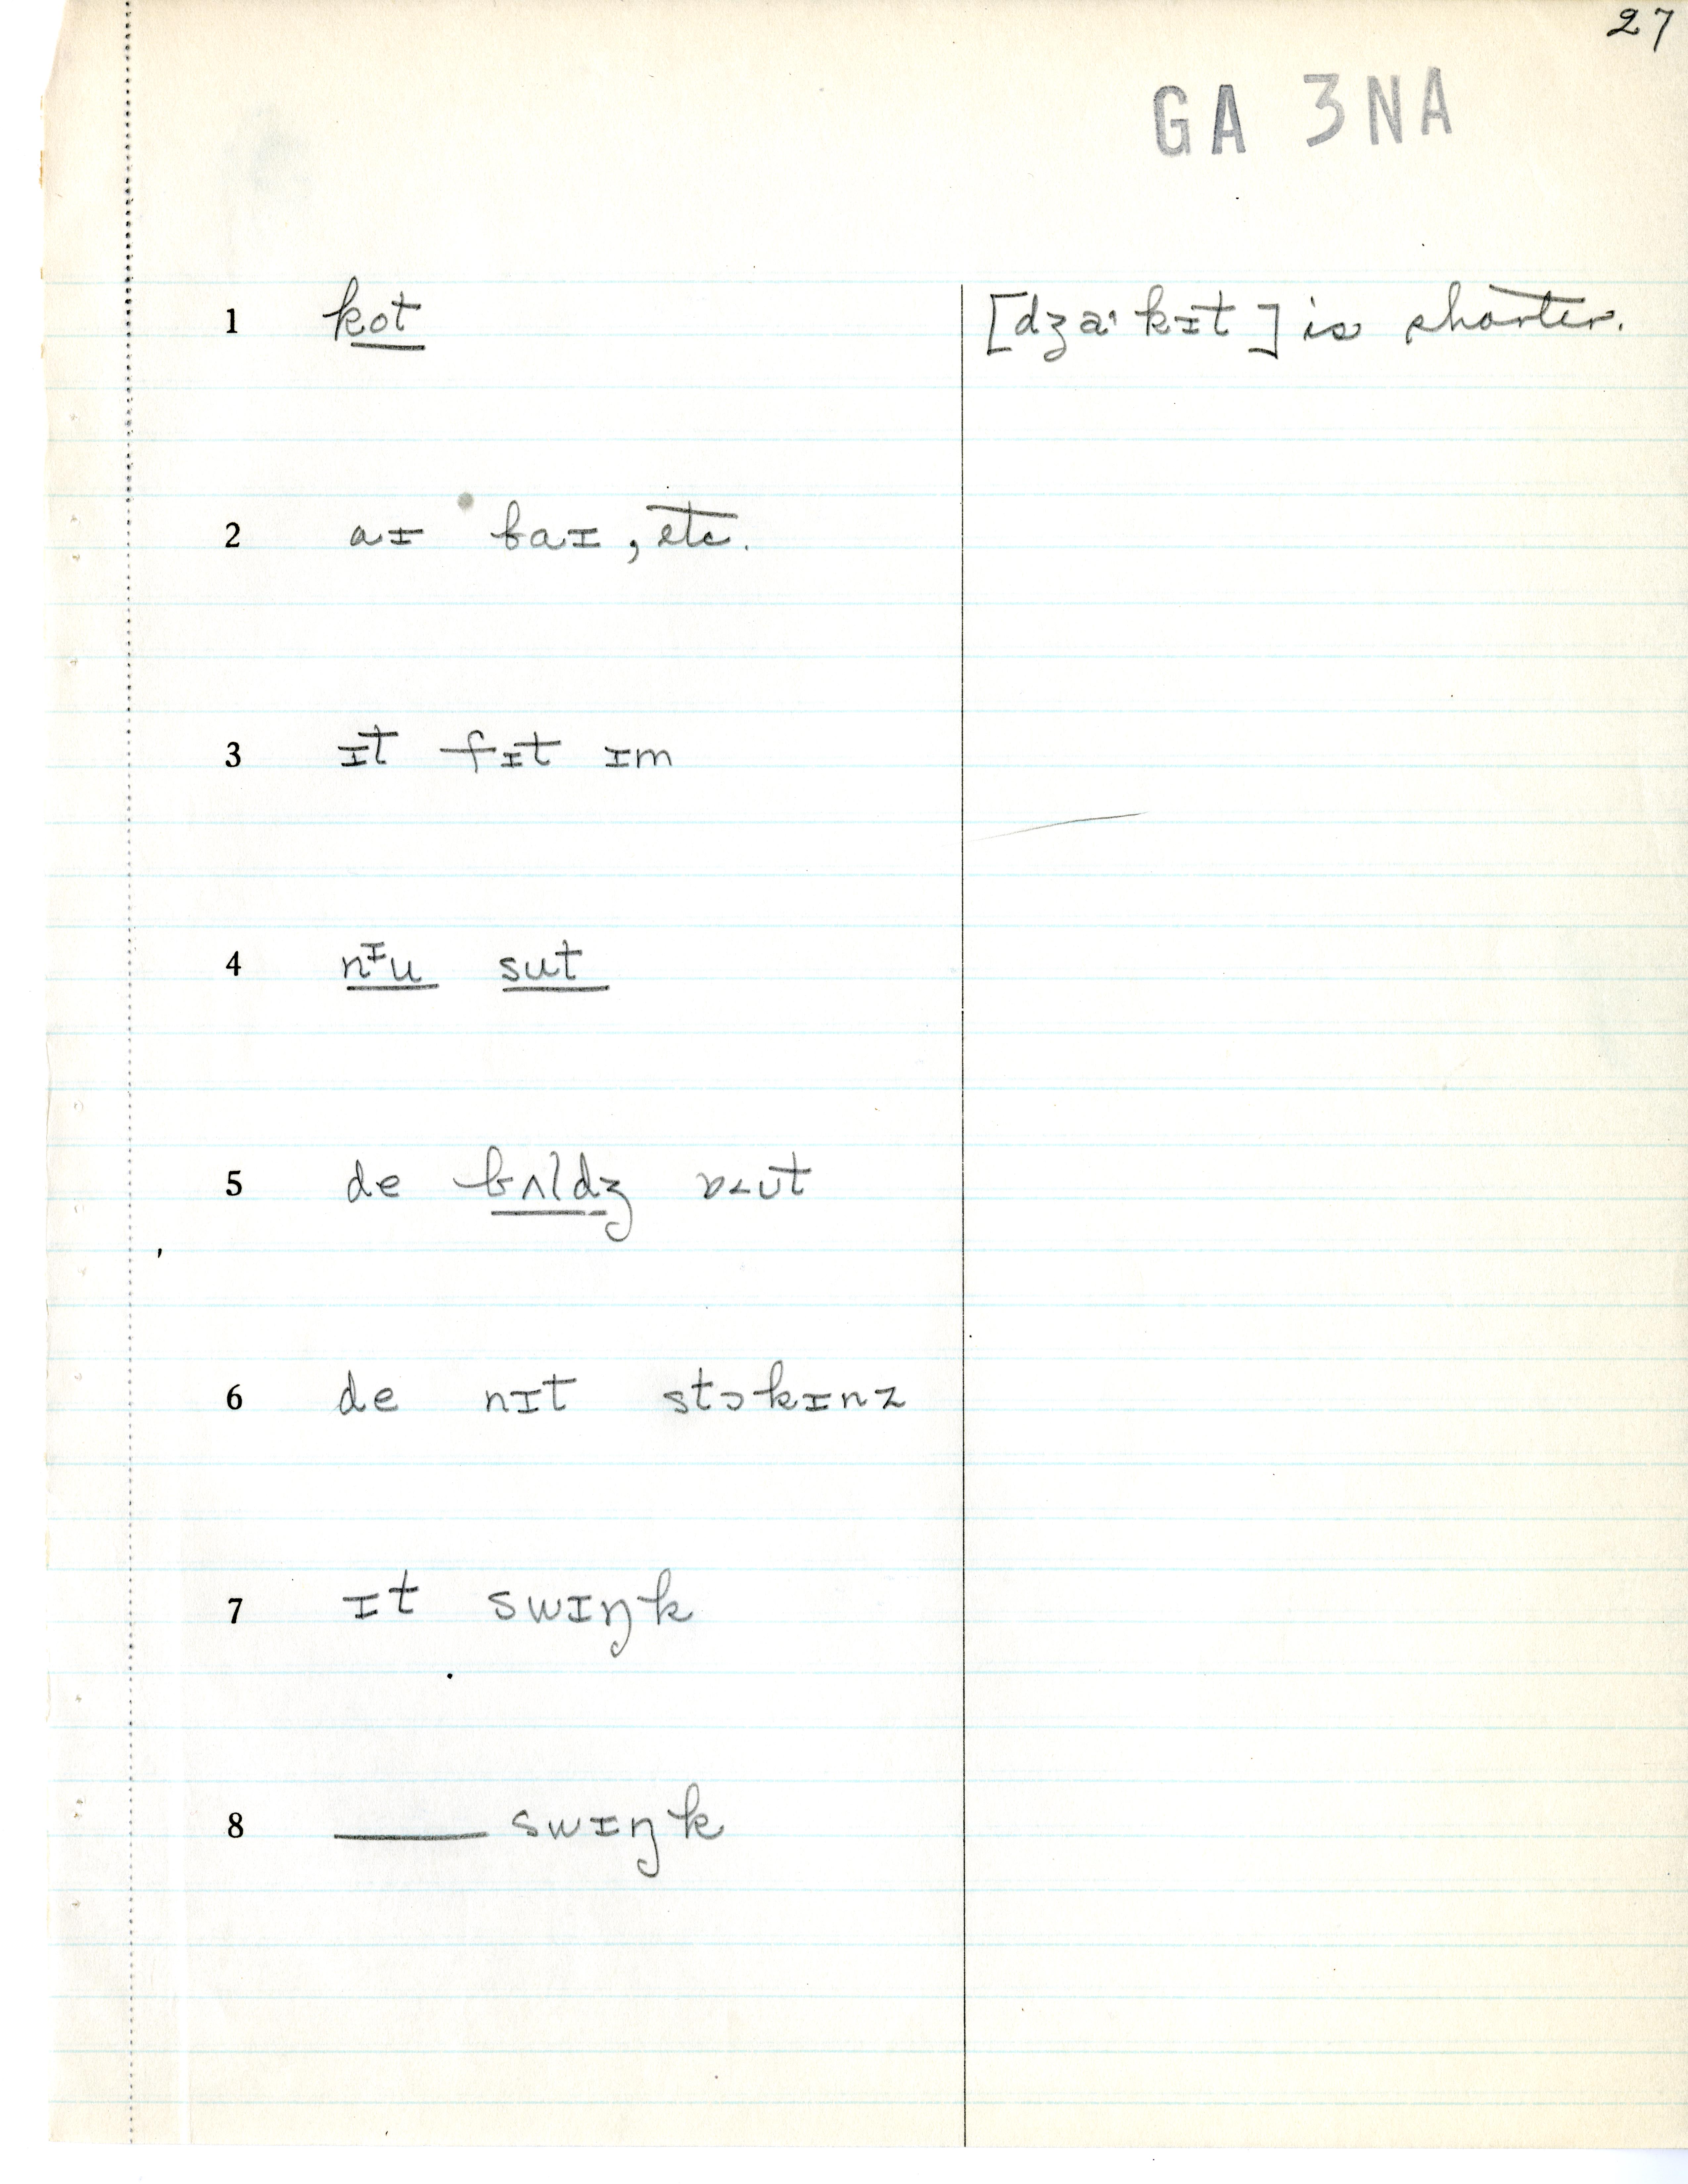 27
GA 3NA
1 kot [dʒaˑkɪt] is shorter.
2 aɪ baɪ, etc.
3 ɪt fɪt ɪm
4 nᶦu sut
5 de bʌldʒ
6 de nɪt stɔkɪnz
7 ɪt swɪŋk
8 ____ swɪŋk